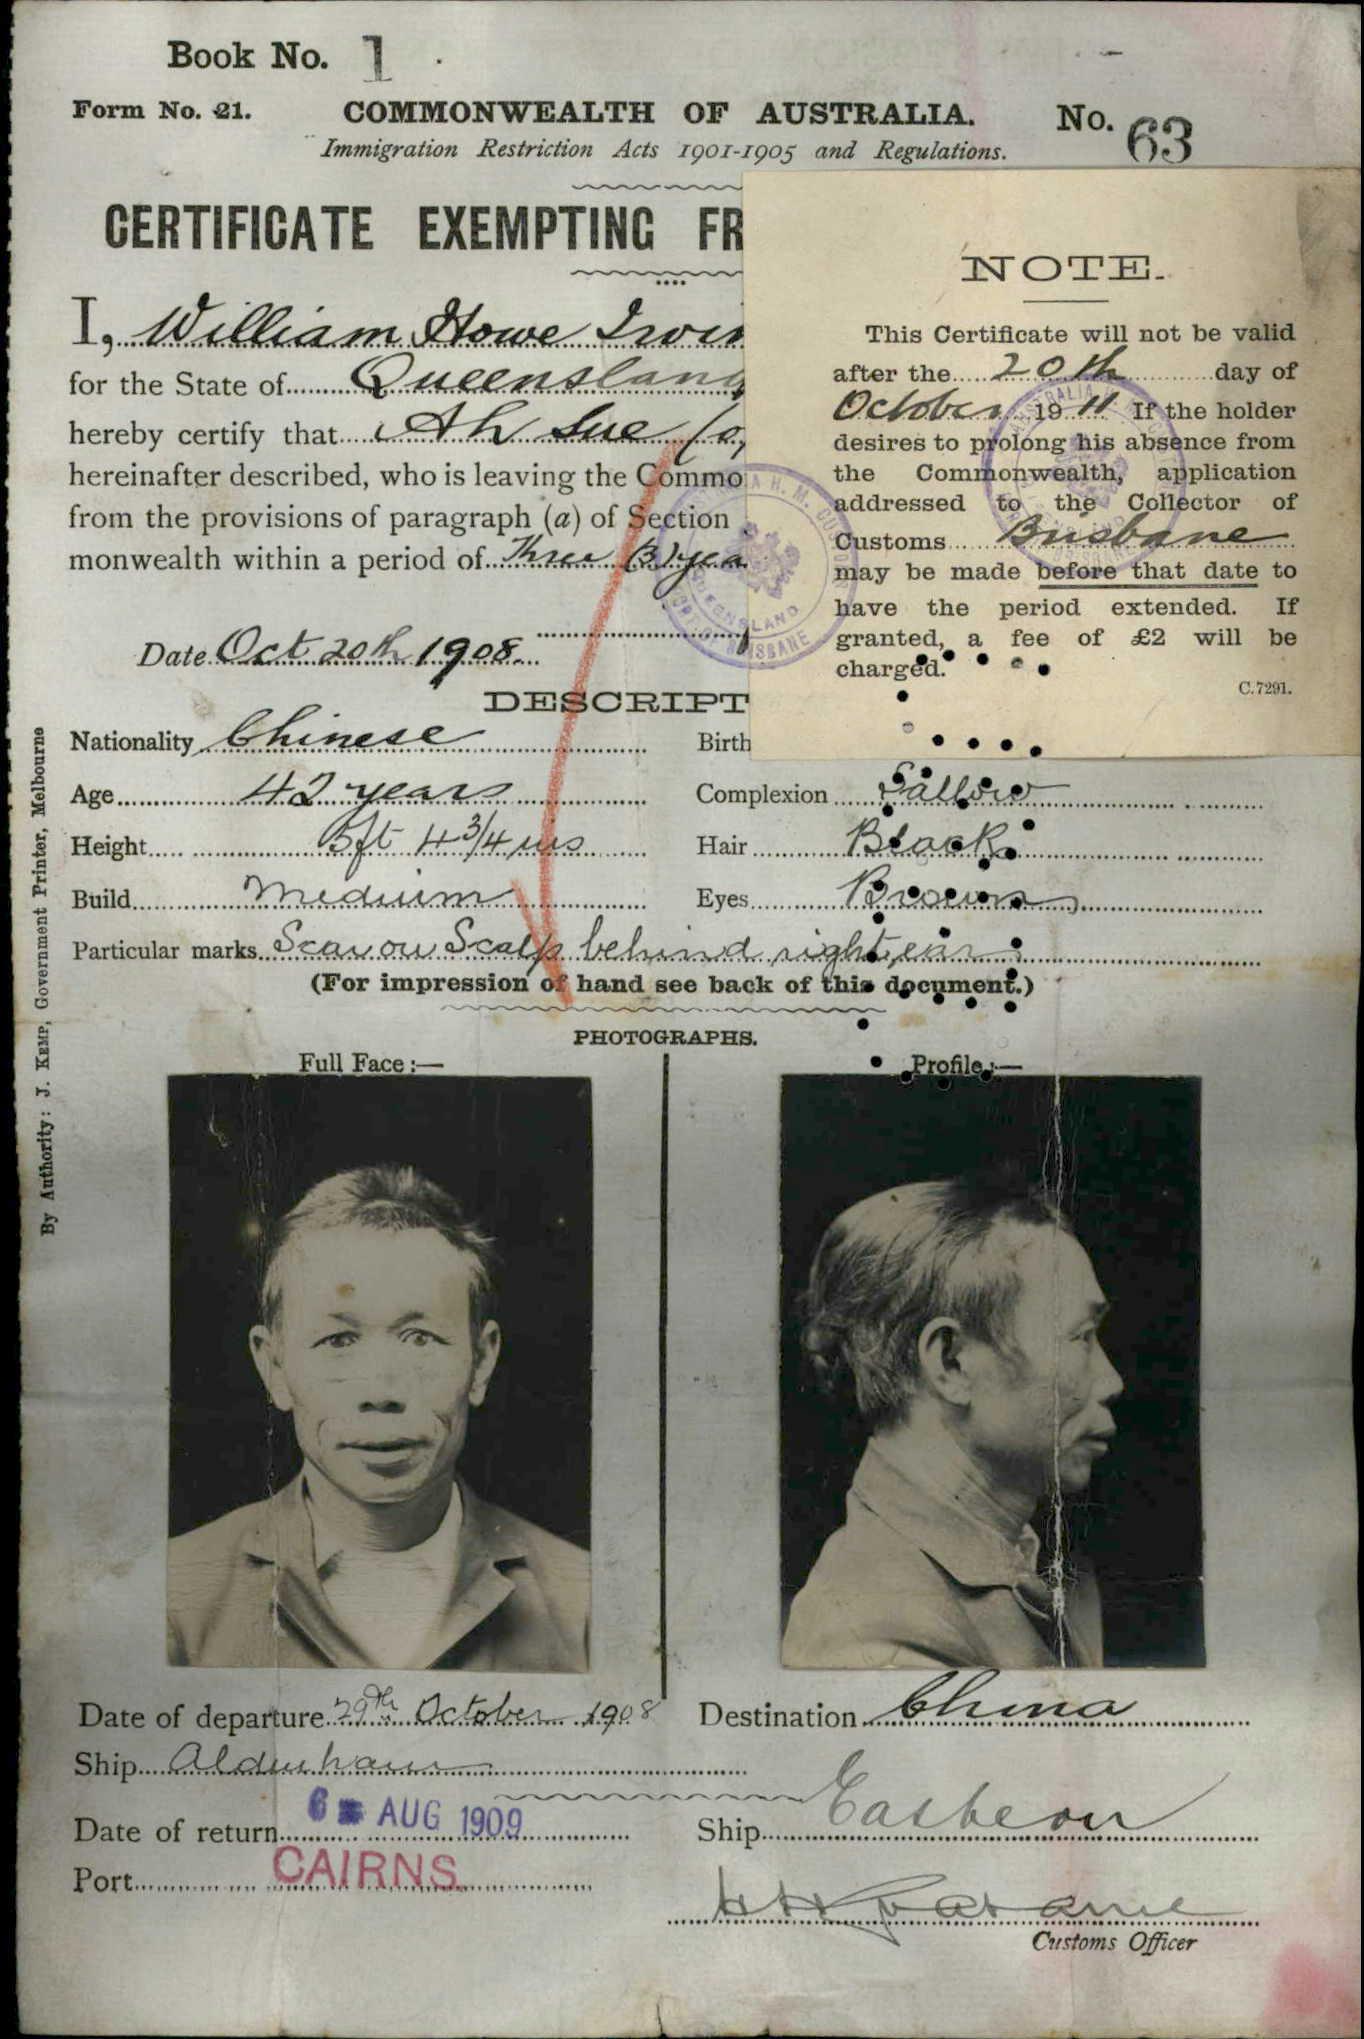 Book No. 1
Form No. 21. COMMONWEALTH OF AUSTRALIA. No. 63
Immigration Restriction Acts 1901-1905 and Regulations.
CERTIFICATE EXEMPTING FR
I, William Howe Irvin
for the State of Queensland
hereby certify that Ah Sue
hereinafter described, who is leaving the Commo
from the provisions of paragraph (a) of Section
monwealth within a period of Three (3) yea
Date Oct 20th 1908.
NOTE.
This Certificate will not be valid
after the 20th day of
October 1911 If the holder
desires to prolong his absence from
the Commonwealth, application
addressed to the Collector of
Customs Brisbane
may be made before that date to
have the period extended. If
granted, a fee of £2 will be
charged.
C.7291.
H. M. CUSTOMS
QUEENSLAND
PORT OF BRISBANE
DESCRIPT
Nationality Chinese Birth
Age 42 years Complexion Sallow
Height 5ft 4 3/4 ins Hair Black
Build Medium Eyes Brown
Particular marks Scar on Scalp behind right ear
(For impression of hand see back of this document.)
PHOTOGRAPHS.
Full Face :— Profile :—
By Authority: J. KEMP, Government Printer, Melbourne
Date of departure 29th October 1908 Destination China
Ship Aldenham
Date of return 6 AUG 1909 Ship Eastern
Port CAIRNS.
Customs Officer